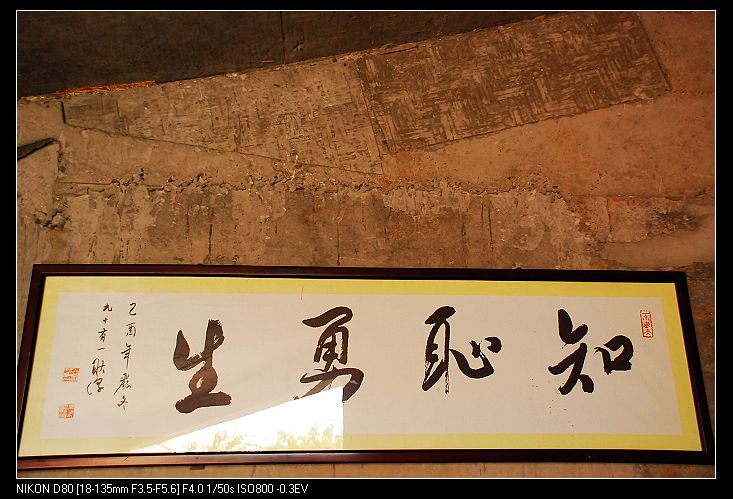 知耻勇生
乙酉年嚴冬
九十有一
NIKON D80 [18-135mm F3.5-F5.6] F4.0 1/50s ISO800 -0.3EV